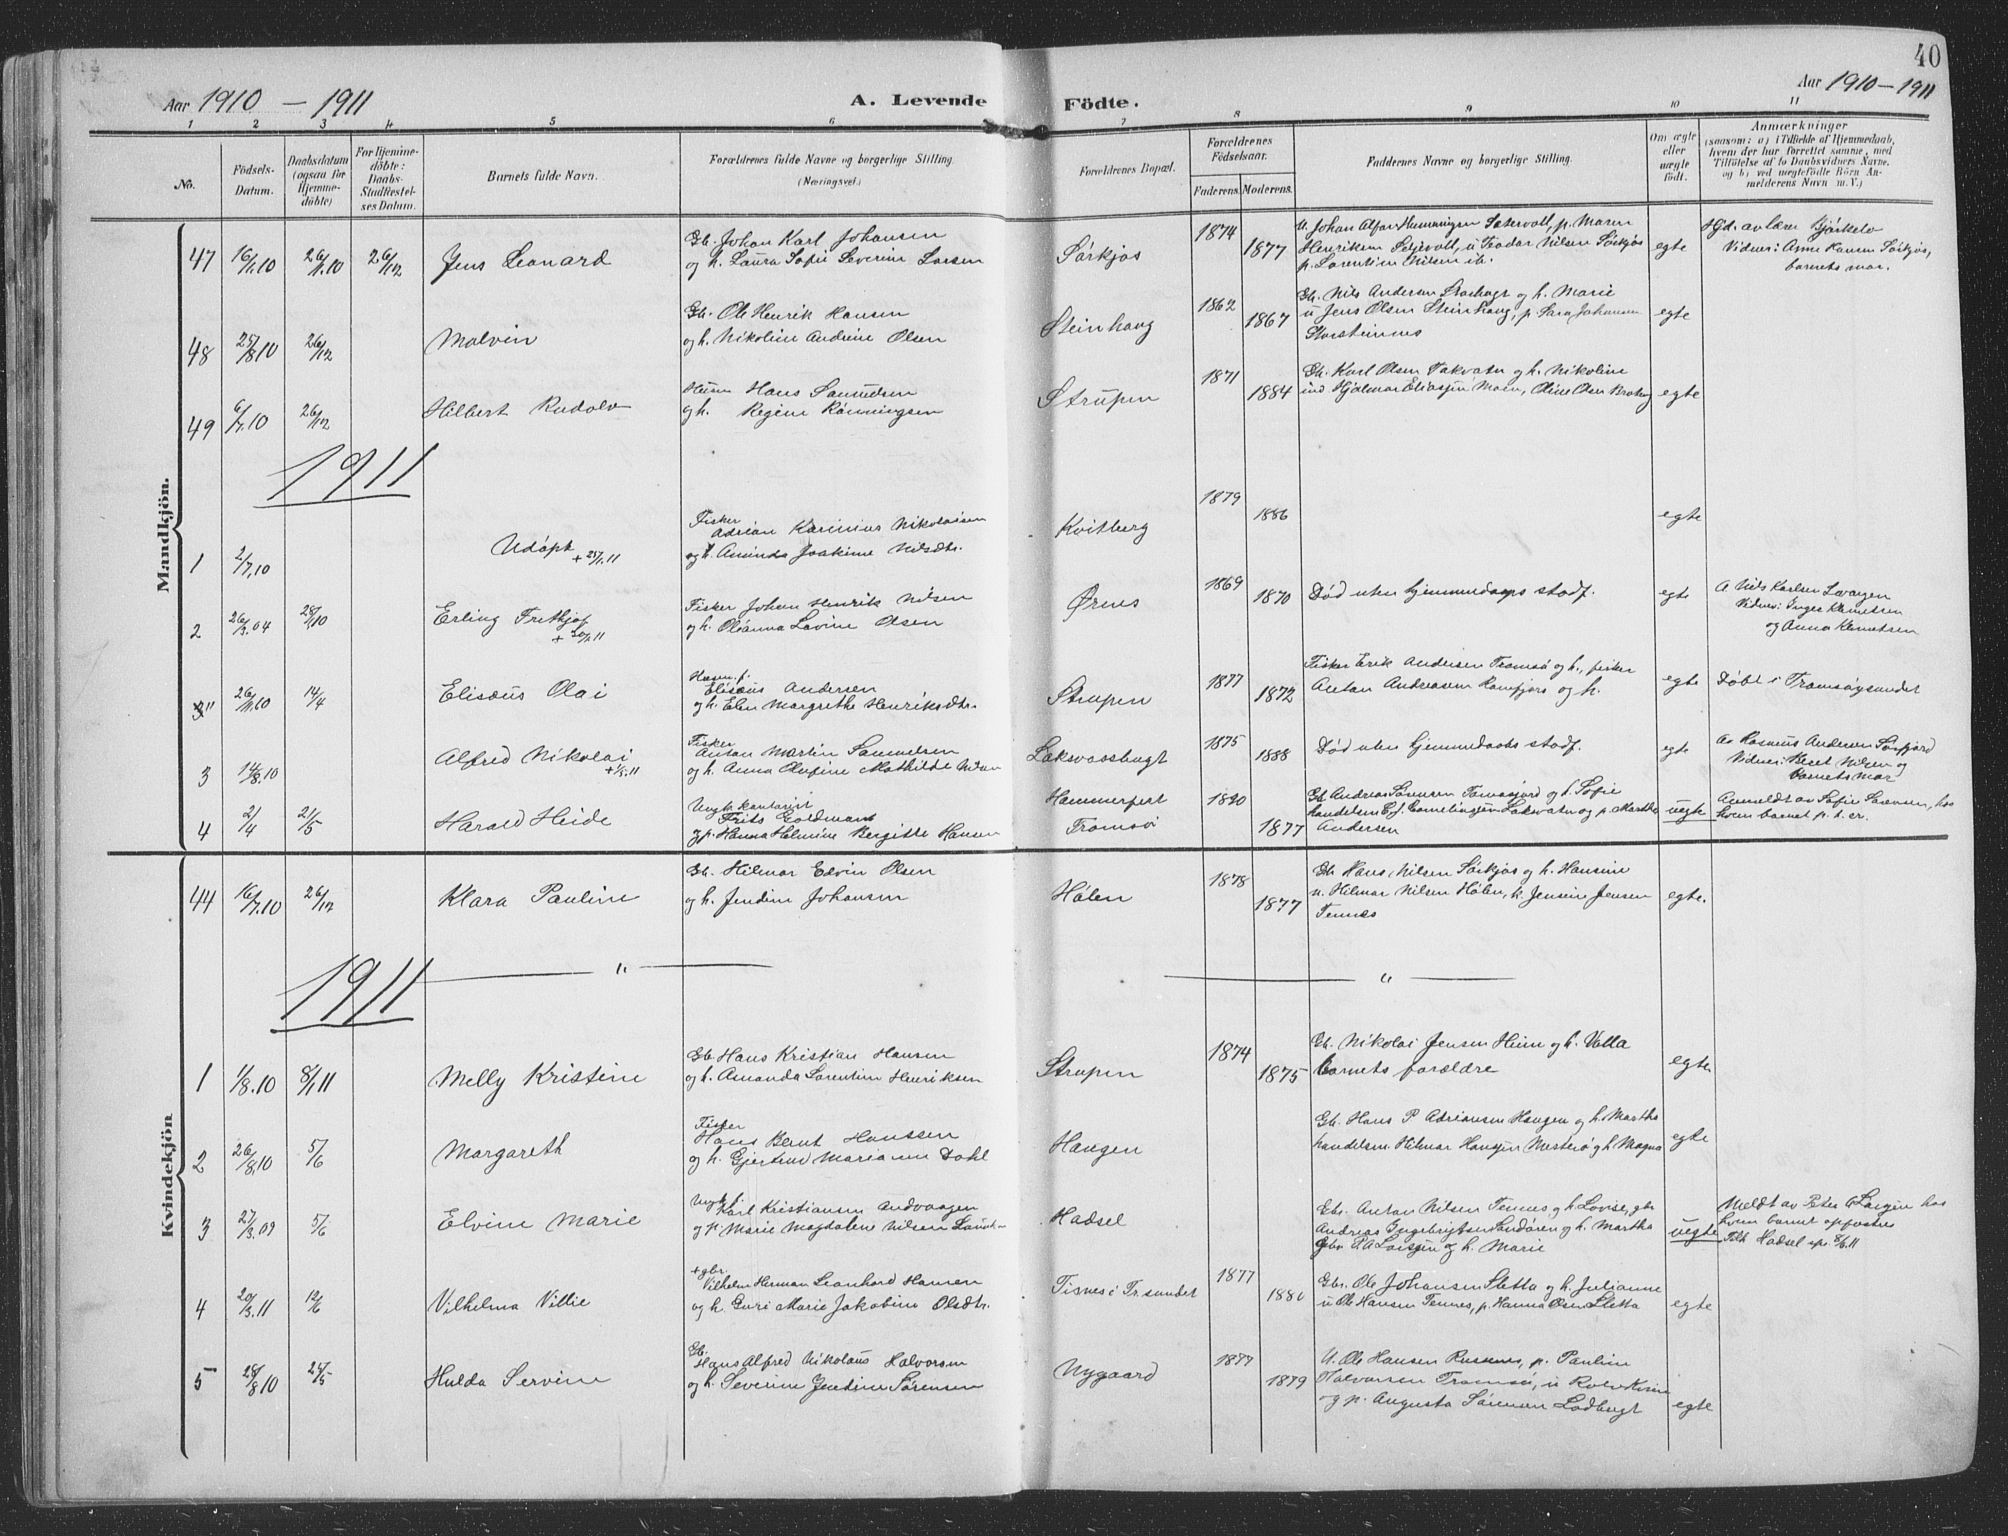 40
Aar 1910 – 1911
A. Levende Födte.
Aar 1910 – 1911
1 2 3 4 5 6 7 8 9 10 11
No.
Födsels-
Datum.
Daabsdatum
(ogsaa for
Hjemme-
döbte)
For Hjemme-
döbte:
Daabs-
Stadfæstel-
ses Datum.
Barnets fulde Navn.
Forældrenes fulde Navne og borgerlige Stilling.
(Næringsvei.)
Forældrenes Bopæl.
Forældrenes
Födselsaar.
Faderens. Moderens.
Faddernes Navne og borgerlige Stilling.
Om ægte
eller
uægte
födt.
Anmærkninger
(saasom: a) i Tilfælde af Hjemmedaab,
hvem der har forrettet samme, med
Tilföielse af to Daabsvidners Navne.
og b) ved uægtefödte Börn An-
melderens Navn m. V.)
Mandkjön.
47 16/11.10 26/11.10 26/12 Jens Leonard
Gb. Johan Karl Johansen
og h. Laura Sofie Severine Larsen
Sørkjos 1874 1877
Henriksen u Teodor Nilsen Sørkjos
p. Lorentine Nilsen ib.
egte
Vidner: Anne Hansen Sørkjos,
barnets mor.
48 25/8.10 26/12 Malvin
Gb. Ole Henrik Hansen
og h. Nikoline Andrine Olsen
Steinhaug 1862 1867
Gb. Nils Andersen og h. Marie
u Jens Olsen Steinhaug, p. Sara Johansen
Storsteinnes
egte
49 6/7.10 26/12 Hilbert Rudolv
Husm Hans Samuelsen
og h. Regine Rønningsen
Strupen 1871 1884
Gb. Karl Olsen Takvatn og h. Nikoline
Hjalmar Eliassen Moen, Oline Olsen
egte
1911
1 2/7.10 Udøpt + 25/1.11
Fisker
Adrian Karinius Nikolaisen
og h. Aminda Joakime Nilsdtr.
Kvitberg 1879 1886 egte
2 26/3.04 28/10 Erling Fritkjof + 20/1.11
Fisker Johan Henrik Nilsen
og h. Oleanna Lovine Olsen
Ørnes 1869 1870
Død uten hjemmedaaps stadf.
egte
A Nils Karlsen
Vidner: Inger Knutsen
og Anna Knutsen
3" 26/11.60 14/4 Elisæus Olai
Husm. f.
Elisæus Andersen
og h. Elen Margrethe Henriksdtr.
Strupen 1877 1872
Fisker Erik Andersen Tromsø og h., fisker
Anton Andreasen Ramfjord og h.
egte Døbt i Tromsøysundet
3 14/8.10 Alfred Nikolai + 1/5.11
Fisker
Anton Martin Samuelsen
og h. Anna Olufine Mathilde Nilsen
Laksvassbugt 1875 1888
Død uten hjemmedaabs stadf.
egte
Av Rasmus Andersen Sørfjord
Vidner: Nilsen og
barnets mor
4 2/4 21/5 Harald Heide
Ungk. kontorist
Frits Goldmann
og p. Hanna Helmine Bergitte Hansen
Hammerfest
Tromsø
1877
Gb Andreas Sørensen Tomasjord og h. Sofie
Lakvatn og p. Martha
Andersen
uegte
Anmeldt av Sofie Sørensen, hos
hvem barnet p. t. er.
Kvindekjön
44 16/7.10 26/12 Klara Pauline
Gb. Hilmar Edvin Olsen
og h. Jendine Johansen
Hølen 1878 1877
Gb Hans Nilsen Sørkjos og h. Hansine
u. Hilmar Nilsen Hølen, k. Jensine Jensen
Tennes
egte.
" "
1911
1 1/8.10 8/1 11 Melly Kristine
Gb Hans Kristian Hansen
og h. Amanda Lorentine Henriksen
Strupen 1874 1875
Gb. Nikolai Jensen Heim og h. Valla
barnets forældre
egte
2 26/8.10 5/6 Margareth
Fisker
Hans Bernt Hanssen
og h. Gjertrud Mariann Dahl
Haugen
Gb. Hans P. Adriansen Haugen og h. Martha
handelsm. Hilmar Hansen og h. Magna
egte
3 27/3.09 5/6 Elvine Marie
Ungk. f.
Karl Kristiansen Andvaagen
og p. Marie Magdalene Nilsen
Hadsel
Gb. Anton Nilsen Tennes og h Lovise, gb
Andreas Ingebrigtsen Sandøren og h. Martha
Gbr P. A. Larssen og h. Marie
uegte
Meldt av Peter A Larssen hos
hvem barnet opfostres
Tilh Hadsel sp. 8/6.11
4 20/3.11 12/6 Vilhelma Villie
+ gbr.
Vilhelm Herman Leonhard Hansen
og h. Guri Marie Jakobine Olsdtr.
Tisnes i Tr.sundet 1877 1880
Gbr. Ole Johansen Sletta og h. Julianne
u Ole Hansen Tennes, p. Hanna Olsen Sletta
egte
5 28/8 10 25/5 Hulda Servine
Gb.
Hans Alfred Nikolaus Halvorsen
og h. Severine Jentine Sørensen
Nygaard 1877 1879
U. Ole Hansen Russnes, p. Pauline
Halvorsen Tromsø, u
og p. Augusta Sørensen Ladbugt
egte